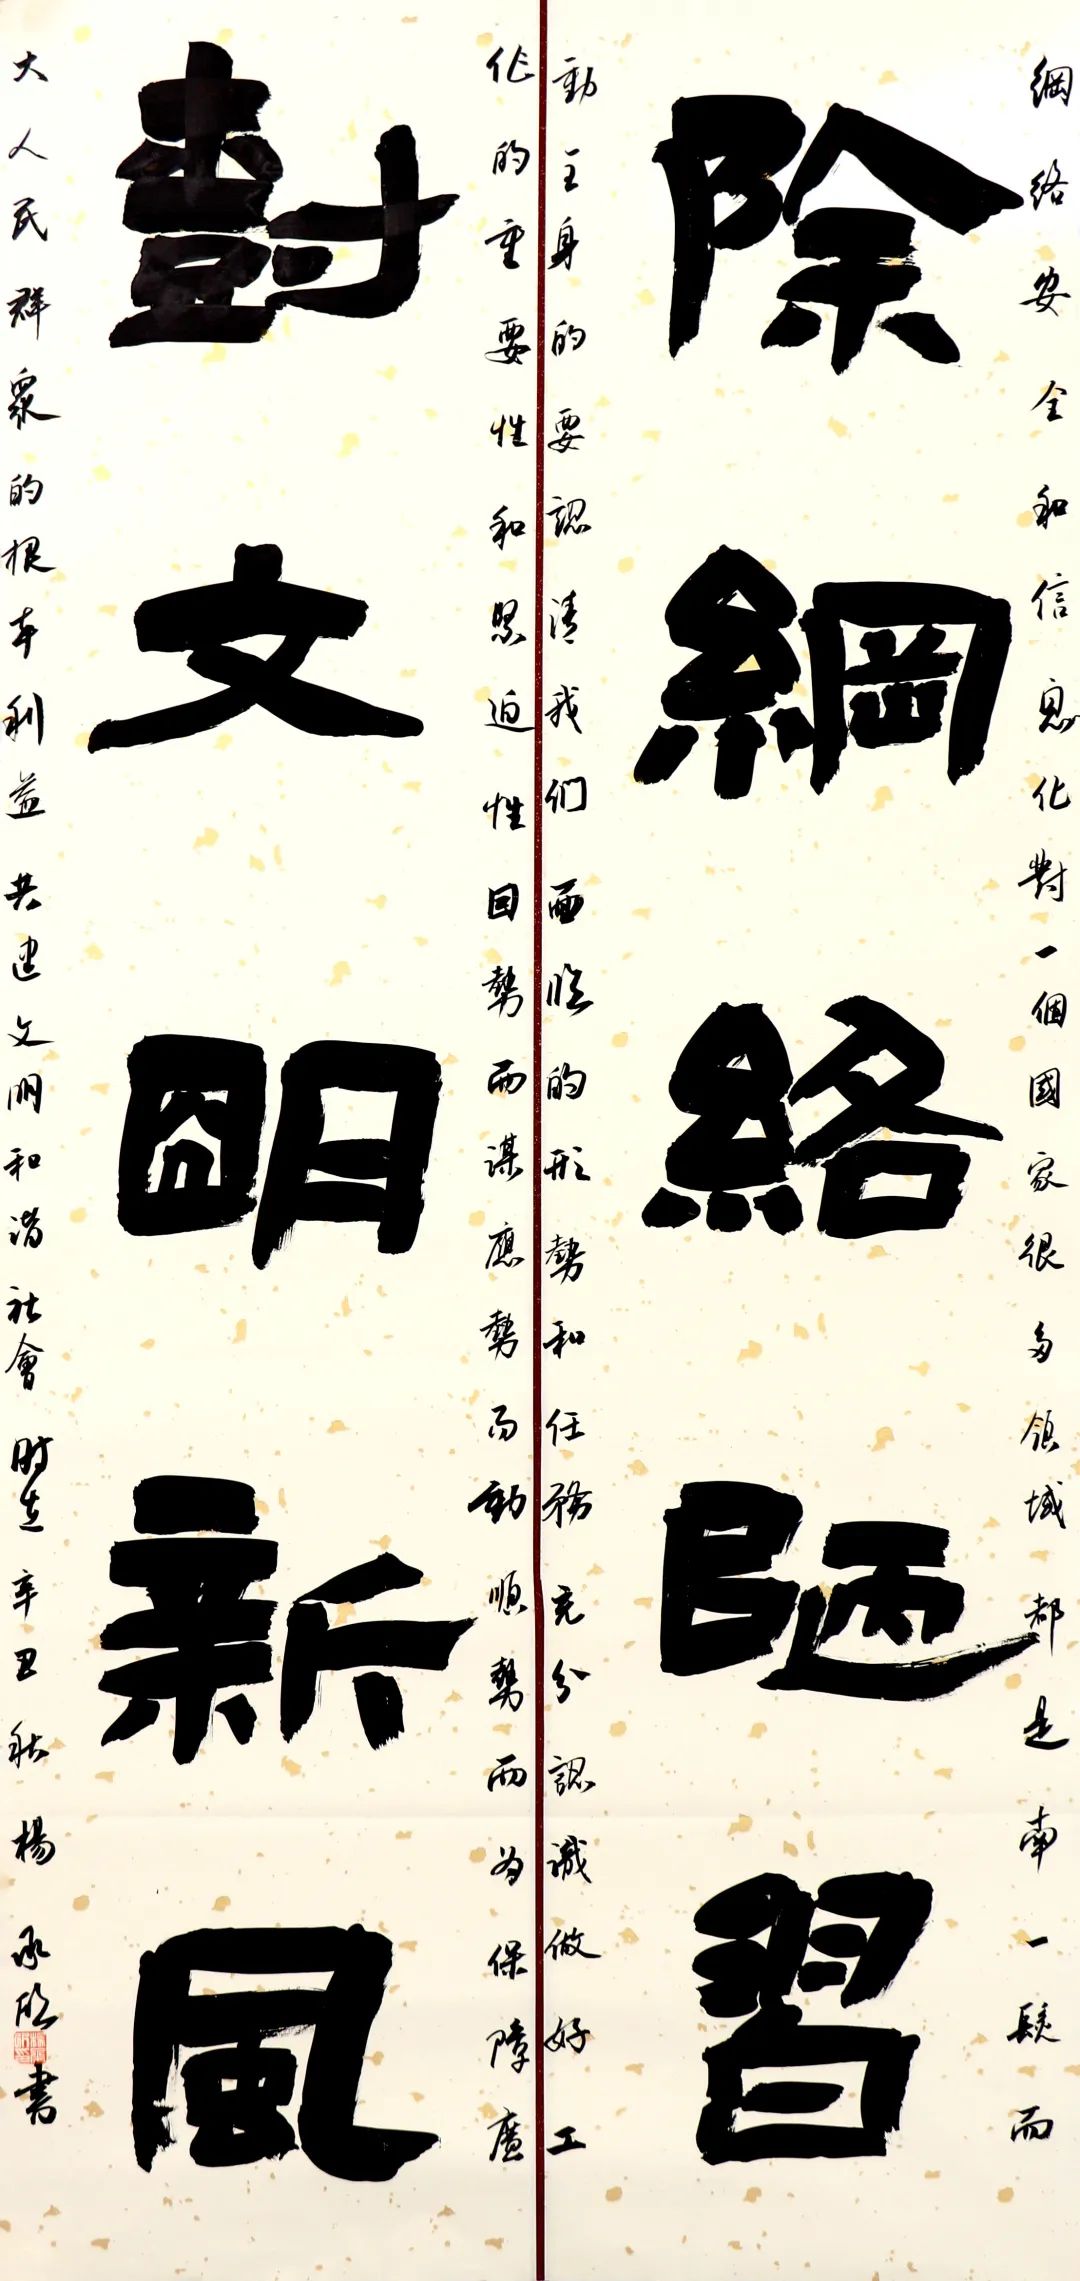 綱絡安全和信息化對一個國家很多領域都是牽一髮而
除綱絡陋習
動全身的要認清我们面臨的形勢和任務充分認識做好工
作的重要性和緊迫性因勢而謀應勢而動順勢而为保障廣
尌文明新風
大人民群眾的根本利益共建文明和諧社會時在辛丑秋楊承書